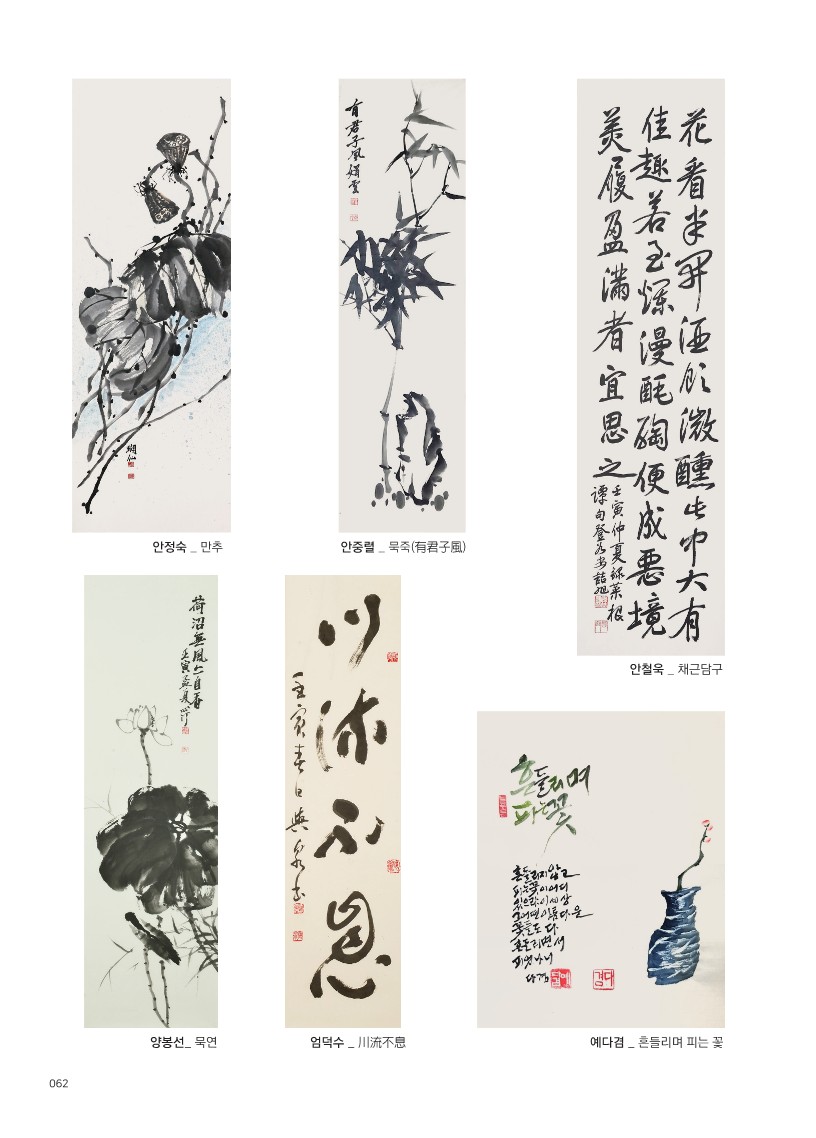 有君子風
花看半開酒飮微醺此中大有
佳趣若至爛漫酕醄便成惡境
矣履盈滿者宜思之
壬寅仲夏錄菜根
譚句
안정숙 _ 만추
안중렬 _ 묵죽(有君子風)
안철욱 _ 채근담구
荷沼無風亦自香
壬寅孟夏
川流不息
壬寅春日
흔들리며
피는 꽃
흔들리지 않고
피는 꽃이 어디
있으랴 이 세상
그 어떤 아름다운
꽃들도 다
흔들리면서
피었나니
다겸
양봉선_ 묵연
엄덕수 _ 川流不息
예다겸 _ 흔들리며 피는 꽃
062